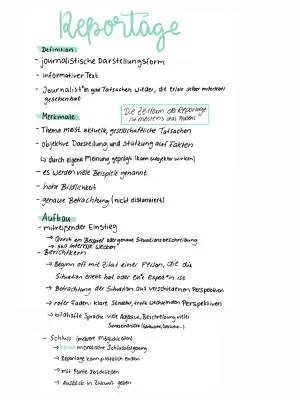 Reportage
Definition
- journalistische Darstellungsform
- informativer Text
- Journalist*in gibt Tatsachen wieder, die er/sie selbst miterlebt
gesehen hat
Die Zeitform der Reportage
ist meistens das Präsens
Merkmale
- Thema meist aktuelle, gesellschaftliche Tatsachen
- objektive Darstellung und Stützung auf Fakten
↳ durch eigene Meinung geprägt (kann subjektiv wirken)
- es werden viele Beispiele genannt
- hohe Bildlichkeit
- genaue Betrachtung (nicht distanziert)
Aufbau
- mitreißender Einstieg
→ Durch ein Beispiel oder genaue Situationsbeschreibung
→ soll Interesse wecken
- Berichtkern
→ Beginn oft mit Zitat einer Person, die die
Situation erlebt hat oder Ein*e Expert*in ist
→ Betrachtung der Situation aus verschiedenen Perspektiven
→ roter Faden: klare Struktur, trotz wechselnden Perspektiven
→ bildhafte Sprache: viele Adjektive, Beschreibung vieler
Sinneseindrücke (Geräusche, Gerüche...)
- Schluss (mehrere Möglichkeiten)
→ keine moralische Schlussfolgerung
→ Reportage kann plötzlich enden
→ mit Pointe abschließen
→ Ausblick in Zukunft geben